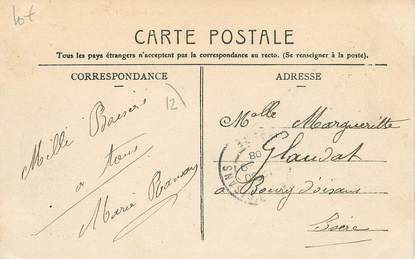 lot
CARTE POSTALE
Tous les pays étrangers n'acceptent pas la correspondance au recto. (Se renseigner à la poste).
CORRESPONDANCE
ADRESSE
12
Mille Baisers
a tous
Marie
Melle Margueritte
Glaudat
a Bourg d'oisans
Isère